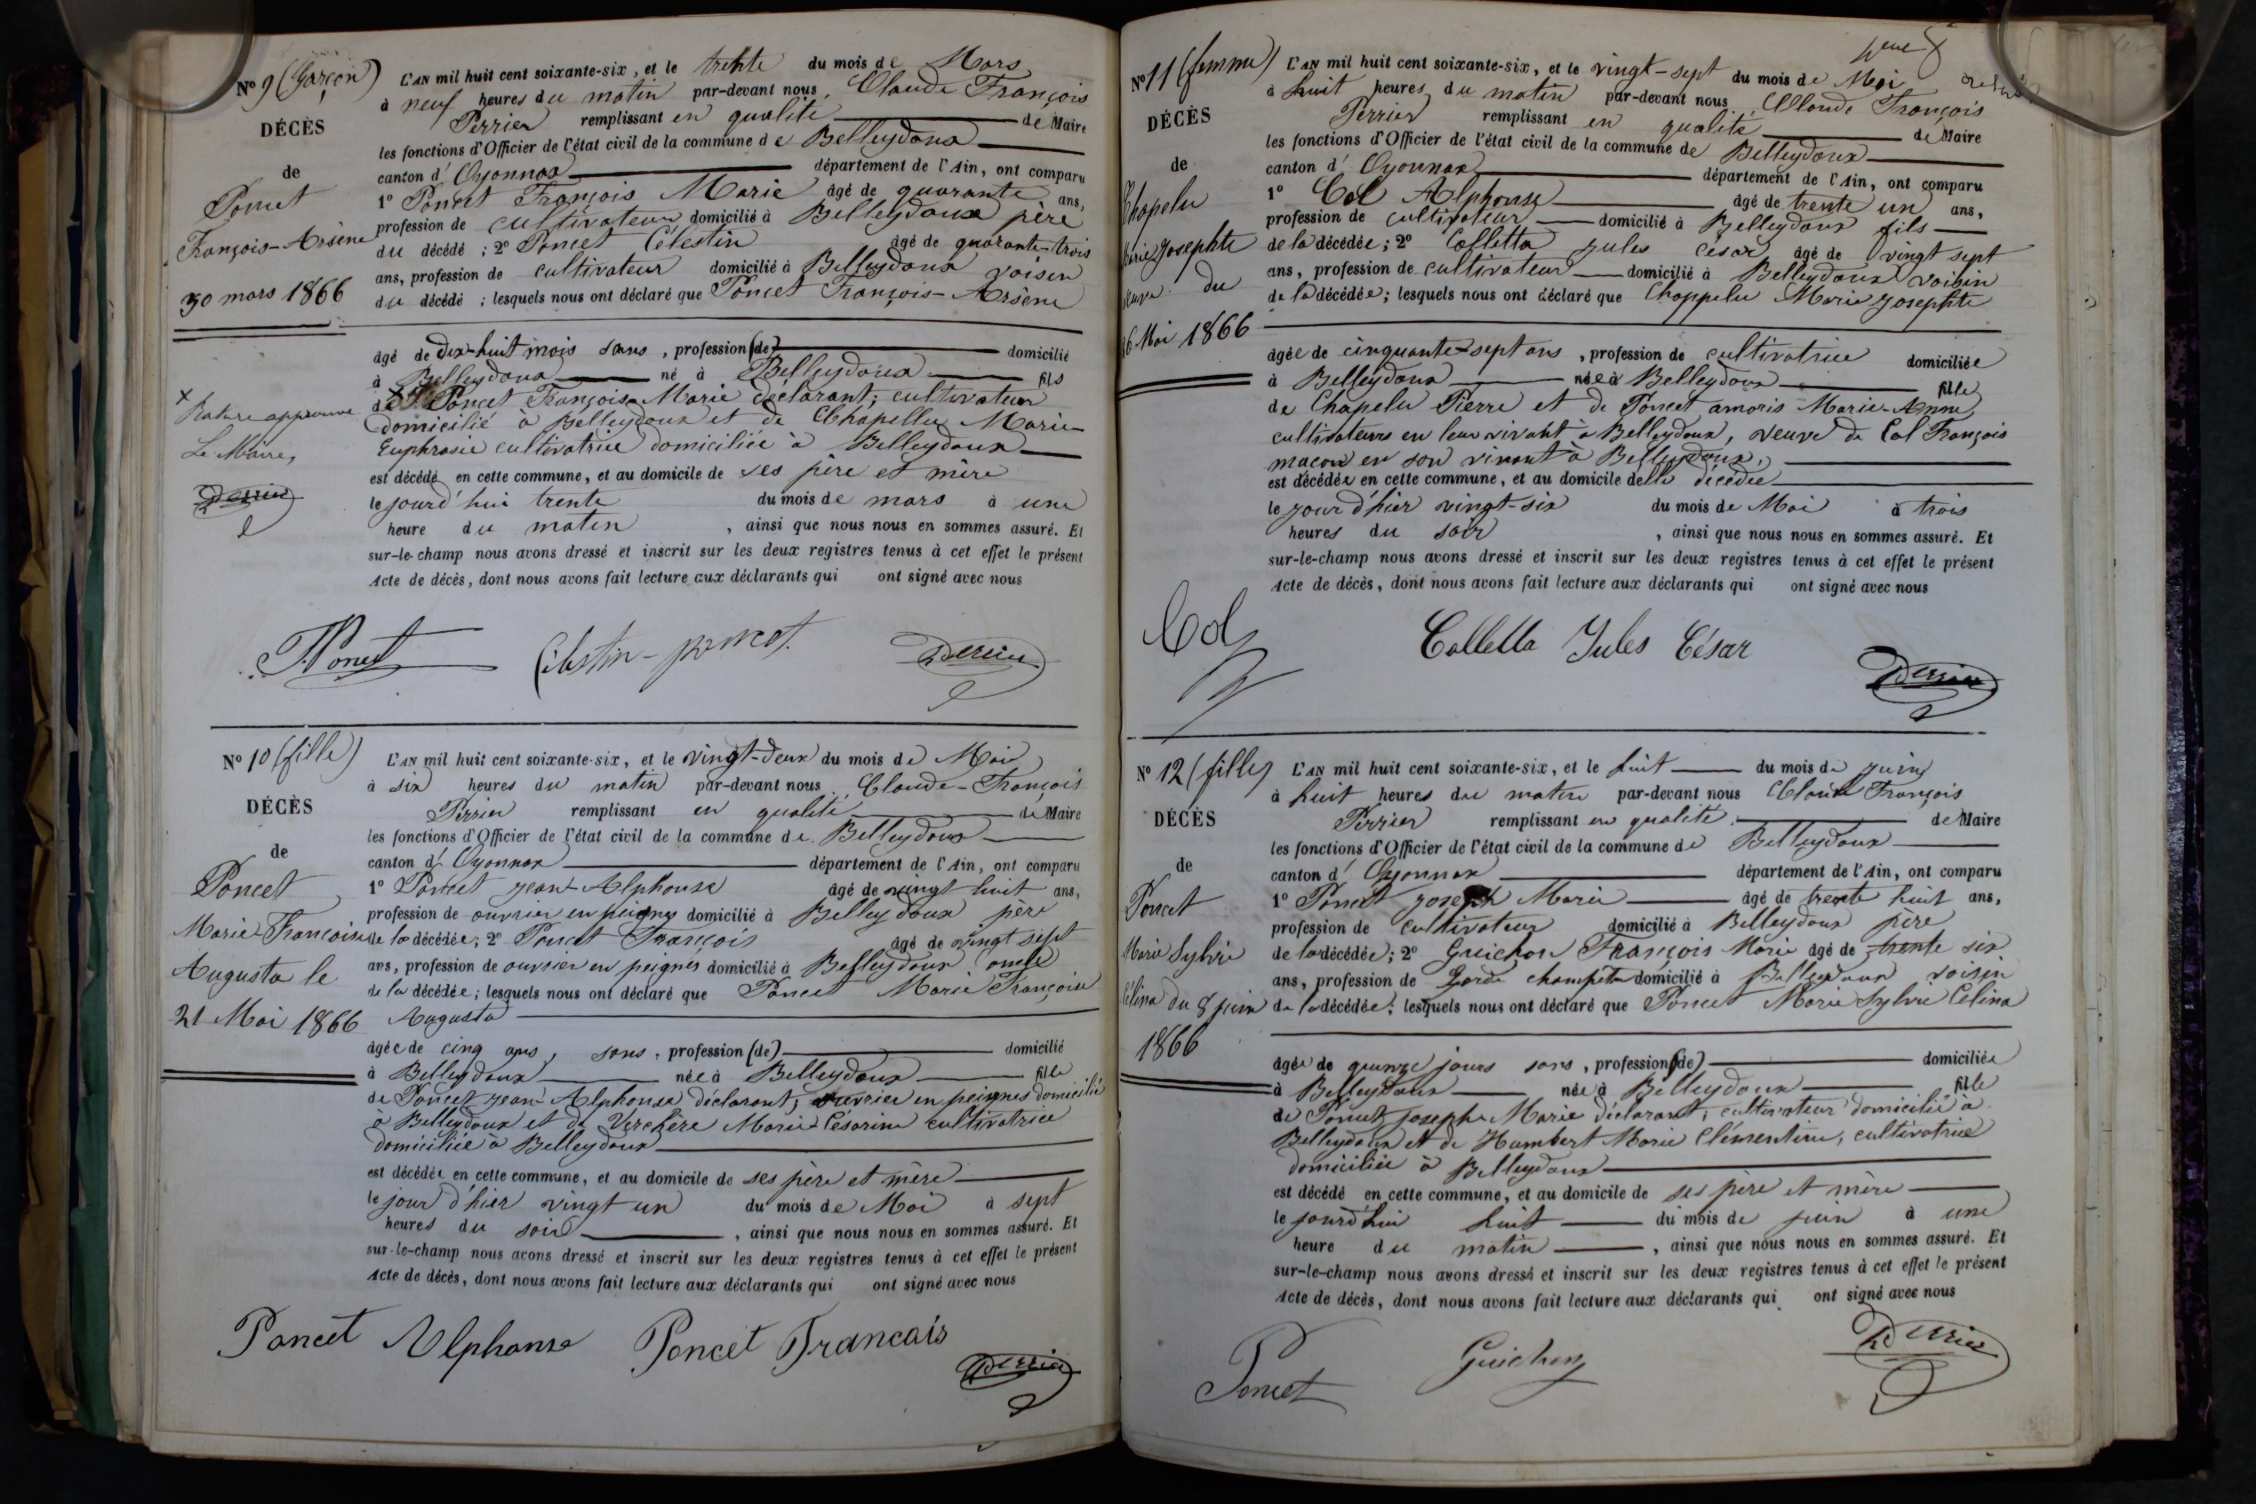 N° 9 (Garçon)
DÉCÈS
de
Poncet
François-Arsène
30 mars 1866
L'AN mil huit cent soixante-six, et le trente du mois de Mars
à neuf heures du matin par-devant nous, Claude François
Perrier remplissant en qualité de Maire
les fonctions d'Officier de l'état civil de la commune de Belleydoux
canton d'Oyonnax département de l'Ain, ont comparu
1° Poncet François Marie âgé de quarante ans,
profession de cultivateur domicilié à Belleydoux père
du décédé ; 2° Poncet Célestin âgé de quarante-trois
ans, profession de cultivateur domicilié à Belleydoux voisin
du décédé ; lesquels nous ont déclaré que Poncet François-Arsène
âgé de dix-huit mois sans, profession (de) domicilié
à Belleydoux né à Belleydoux fils
de Poncet François Marie déclarant, cultivateur
domicilié à Belleydoux et de Chapellu Marie-
Euphrasie cultivatrice domiciliée à Belleydoux
est décédé en cette commune, et au domicile de ses père et mère
le jourd'hui trente du mois de mars à une
heure du matin, ainsi que nous nous en sommes assuré. Et
sur-le-champ nous avons dressé et inscrit sur les deux registres tenus à cet effet le présent
Acte de décès, dont nous avons fait lecture aux déclarants qui ont signé avec nous
x Rature approuvé
Le Maire,
Perrier
Poncet Célestin-poncet. Perrier
N° 10 (fille)
DÉCÈS
de
Poncet
Marie Françoise
Augusta le
21 Mai 1866
L'AN mil huit cent soixante-six, et le vingt-deux du mois de Mai
à six heures du matin par-devant nous Claude-François
Perrier remplissant en qualité de Maire
les fonctions d'Officier de l'état civil de la commune de Belleydoux
canton d'Oyonnax département de l'Ain, ont comparu
1° Poncet Jean Alphonse âgé de vingt huit ans,
profession de ouvrier en peignes domicilié à Belleydoux père
de la décédée ; 2° Poncet François âgé de vingt sept
ans, profession de ouvrier en peignes domicilié à Belleydoux oncle
de la décédée ; lesquels nous ont déclaré que Poncet Marie Françoise
Augusta
âgée de cinq ans, sans, profession (de) domicilié
à Belleydoux née à Belleydoux fille
de Poncet Jean Alphonse déclarant, ouvrier en peignes domicilié
à Belleydoux et de Verchère Marie Césarine cultivatrice
domiciliée à Belleydoux
est décédée en cette commune, et au domicile de ses père et mère
le jour d'hier vingt un du mois de Mai à sept
heures du soir, ainsi que nous nous en sommes assuré. Et
sur-le-champ nous avons dressé et inscrit sur les deux registres tenus à cet effet le présent
Acte de décès, dont nous avons fait lecture aux déclarants qui ont signé avec nous
Poncet Alphonse Poncet Francois Perrier
N° 11 (femme)
DÉCÈS
de
Chapelu
Marie Josephte
veuve du
26 Mai 1866
L'AN mil huit cent soixante-six, et le vingt-sept du mois de Mai
à huit heures du matin par-devant nous Claude François
Perrier remplissant en qualité de Maire
les fonctions d'Officier de l'état civil de la commune de Belleydoux
canton d'Oyonnax département de l'Ain, ont comparu
1° Col Alphonse âgé de trente un ans,
profession de cultivateur domicilié à Belleydoux fils
de la décédée ; 2° Colletta Jules César âgé de vingt sept
ans, profession de cultivateur domicilié à Belleydoux voisin
de la décédée ; lesquels nous ont déclaré que Chappelu Marie Josephte
âgée de cinquante-sept ans, profession de cultivatrice domiciliée
à Belleydoux née à Belleydoux fille
de Chapelu Pierre et de Poncet amoris Marie-Anne,
cultivateurs en leur vivant à Belleydoux, veuve de Col François
maçon en son vivant à Belleydoux,
est décédée en cette commune, et au domicile de la décédée
le jour d'hier vingt-six du mois de Mai à trois
heures du soir, ainsi que nous nous en sommes assuré. Et
sur-le-champ nous avons dressé et inscrit sur les deux registres tenus à cet effet le présent
Acte de décès, dont nous avons fait lecture aux déclarants qui ont signé avec nous
Col Colletta Jules César Perrier
N° 12 (fille)
DÉCÈS
de
Poncet
Marie Sylvie
Célina du 8 juin
1866
L'AN mil huit cent soixante-six, et le huit du mois de juin
à huit heures du matin par-devant nous Claude François
Perrier remplissant en qualité de Maire
les fonctions d'Officier de l'état civil de la commune de Belleydoux
canton d'Oyonnax département de l'Ain, ont comparu
1° Poncet Joseph Marie âgé de trente huit ans,
profession de cultivateur domicilié à Belleydoux père
de la décédée ; 2° Guichon François Marie âgé de trente six
ans, profession de Garde champêtre domicilié à Belleydoux voisin
de la décédée ; lesquels nous ont déclaré que Poncet Marie Sylvie Célina
âgée de quinze jours sans, profession (de) domiciliée
à Belleydoux née à Belleydoux fille
de Poncet Joseph Marie déclarant, cultivateur domicilié à
Belleydoux et de Humbert Marie Clémentine, cultivatrice
domiciliée à Belleydoux
est décédé en cette commune, et au domicile de ses père et mère
le jourd'hui huit du mois de juin à une
heure du matin, ainsi que nous nous en sommes assuré. Et
sur-le-champ nous avons dressé et inscrit sur les deux registres tenus à cet effet le présent
Acte de décès, dont nous avons fait lecture aux déclarants qui ont signé avec nous
Poncet Guichon Perrier